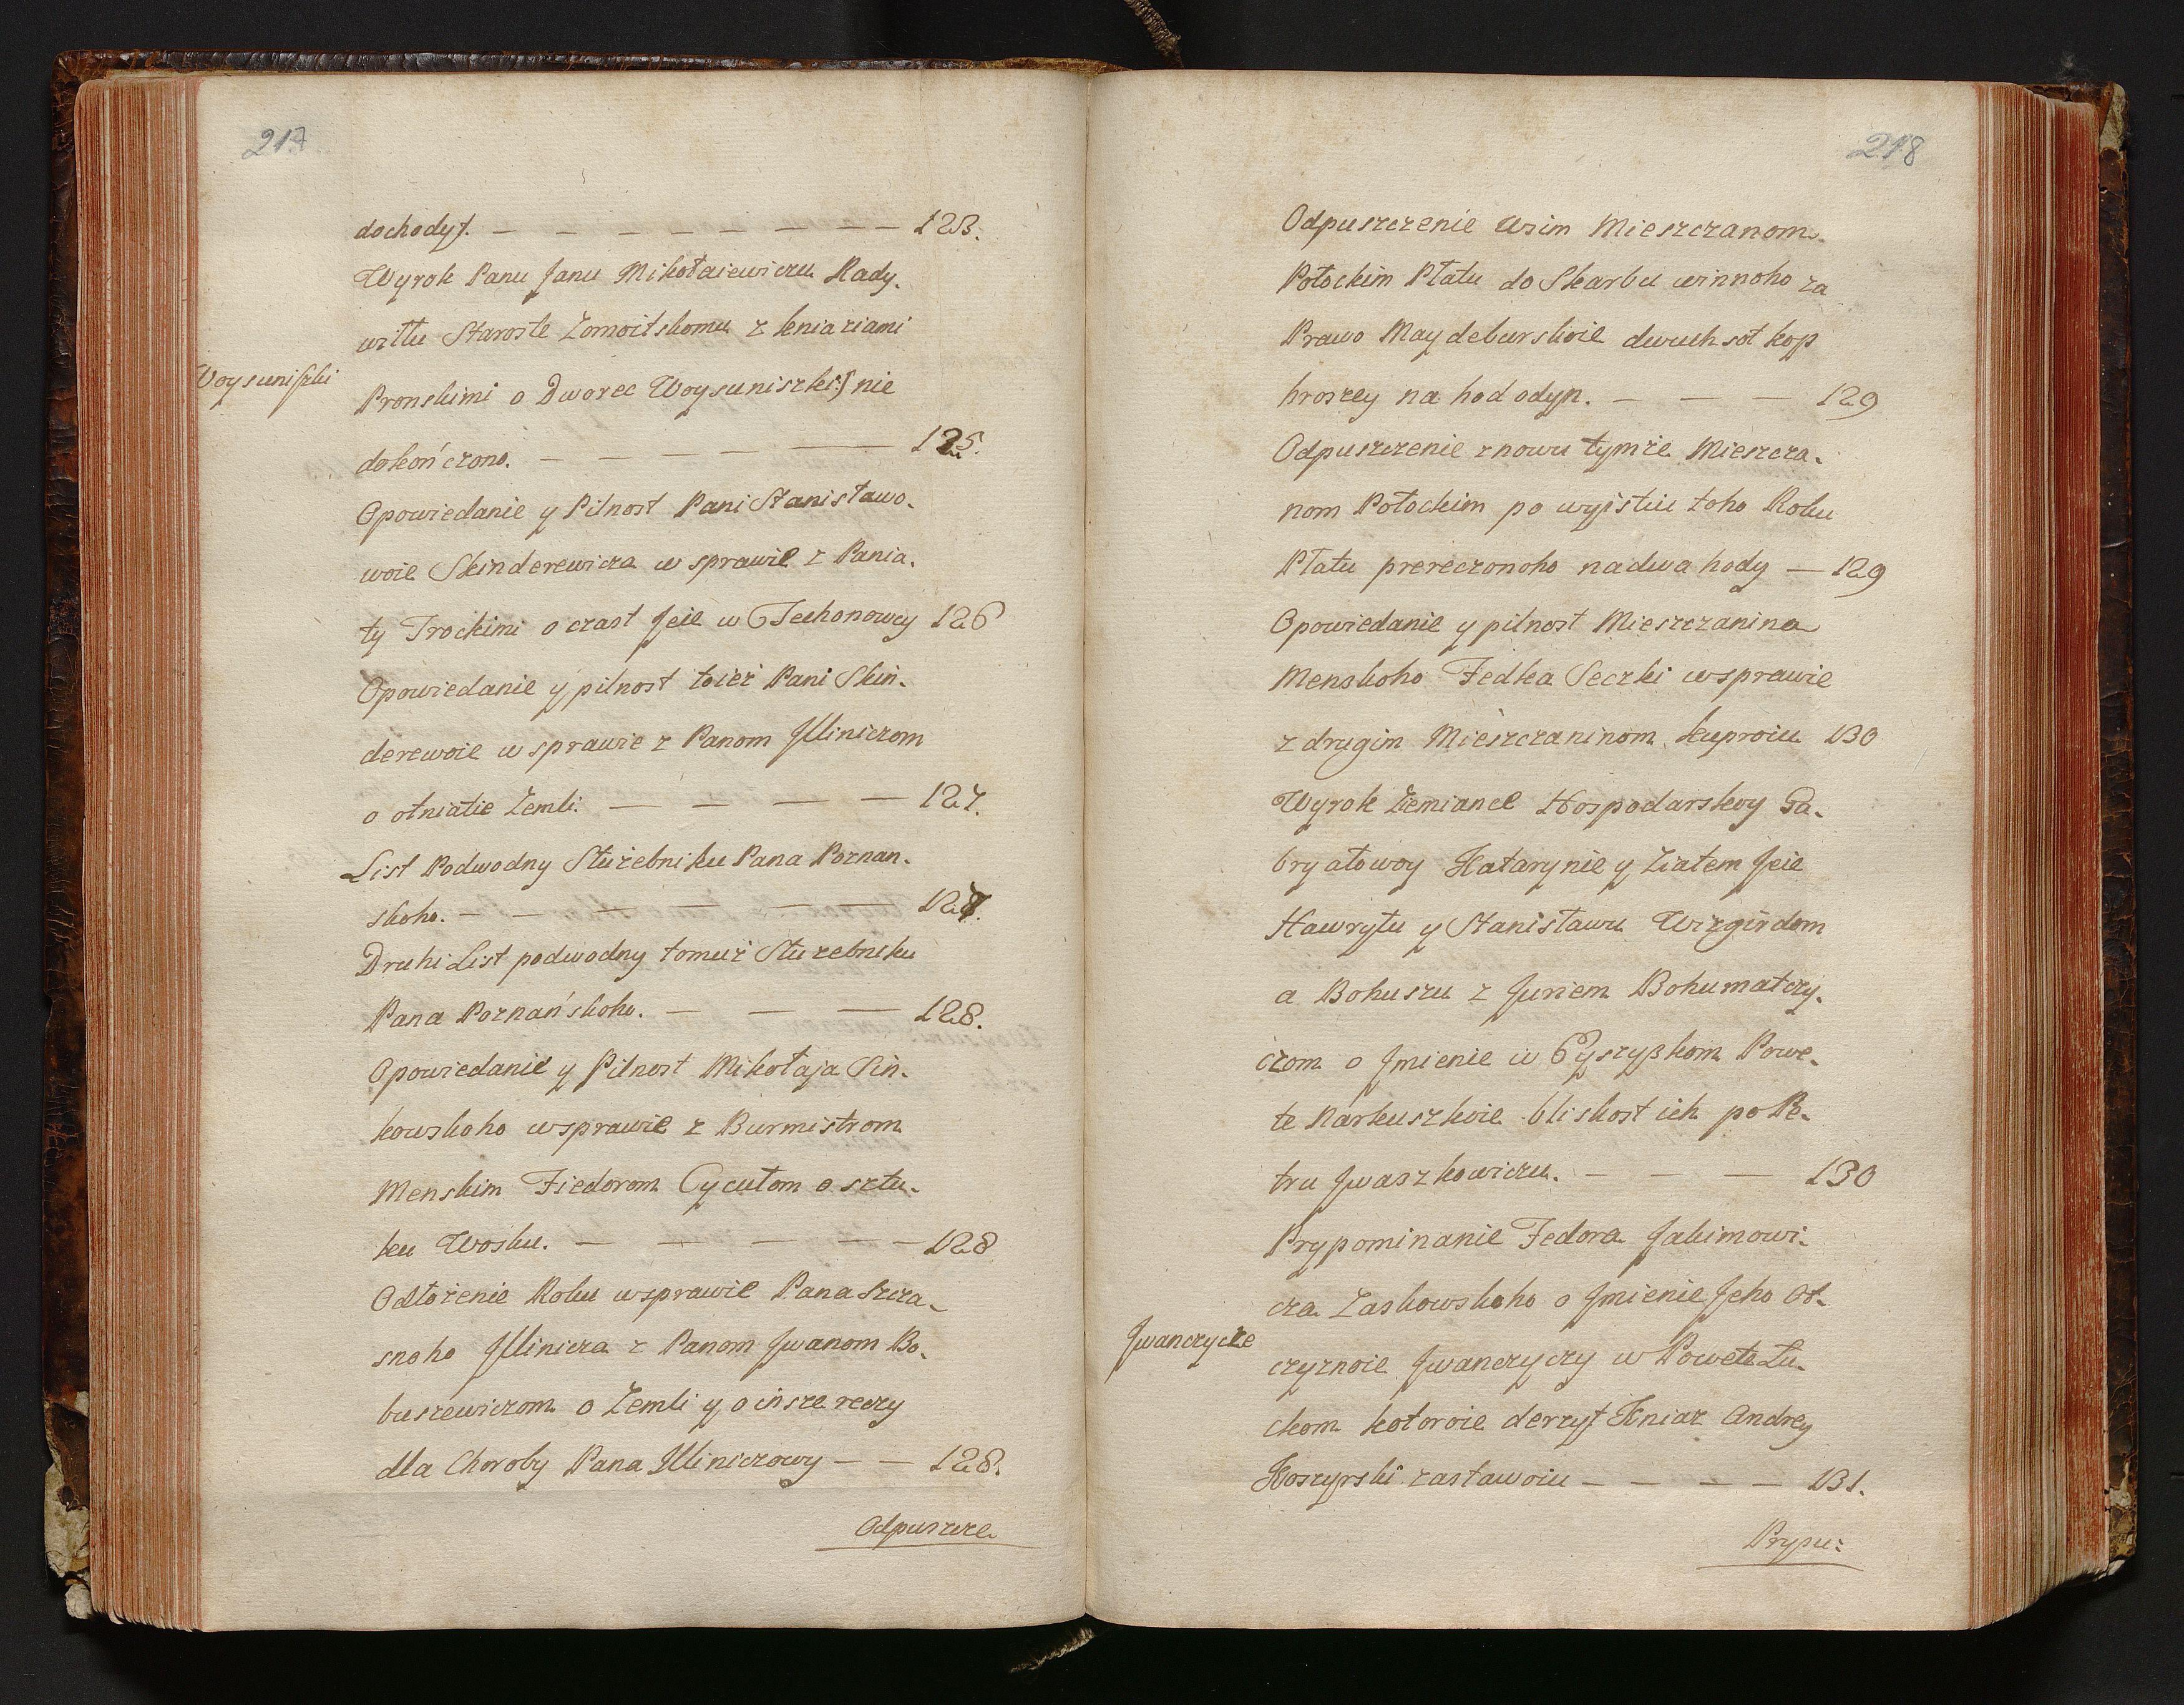 217
dochody/. — — — — — — — — 123.
Wyrok Panu Janu Mikołaiewiczu Rady-
wiłłu Staroste Żomoitskomu z kniaziami
Woysuniszki
Pronskimi o Dworec Woysuniszki:/ nie
dokończono. — — — — — — 125.
Opowiedanie y Pilnost Pani Stanisławo-
woie Skinderewicza w sprawie z Pania-
ty Trockimi o czast Jeie w Techonowcy 126
Opowiedanie y pilnost toież Pani Skin-
derewoie w sprawie z Panom Jlliniczom
o otniatie Zemli. — — — — 127.
List Podwodny Służebniku Pana Poznan-
skoho. — — — — — 127.
Druhi List podwodny tomuż Służebniku
Pana Poznańskoho. — — — 128.
Opowiedanie y Pilnost Mikołaja Sin-
kowskoho w sprawie z Burmistrom
Menskim Fiedorom Cycutom o sztu-
ku Wosku. — — — — — 128
Odłożenie Roku w sprawie Pana Szcza-
snoho Jllinicza z Panom Jwanom Bo-
buszewiczom o Zemli y o insze reczy
dla Choroby Pana Jlliniczowy — — 128.
Odpuszcze-
218
Odpuszczenie wsim Mieszczanom
Połockim Płatu do Skarbu winnoho za
Prawo Maydeburskoie dwuch sot kop
hroszey na hod odyn. — — — 129
Odpuszczenie znowu tymże Mieszcza-
nom Połockim po wyistiu toho Roku
Płatu prereczonoho na dwa hody — 129
Opowiedanie y pilnost Mieszczanina
Menskoho Fedka Seczki w sprawie
z drugim Mieszczaninom Kuproiu 130
Wyrok Ziemiance Hospodarskoy Ga-
bryałowoy Katarynie y Ziatem Jeie
Hawryłu y Stanisławu Wizgirdom
a Bohuszu z Juriem Bohumatczy-
czom o Jmienie w Eyszyßkom Powe-
te Narkuszkoie bliskost ich po Pe-
tru Jwaszkowiczu. — — — 130
Prypominanie Fedora Jakimowi-
cza Zaskowskoho o Jmienie Jeho Ot-
Jwanczycze
czyznoie Jwanczyczy w Powete Łu-
ckom kotoroie derżyt Kniaz Andrey
Koszyrski zastawoiu — — — — 131.
Prypu: